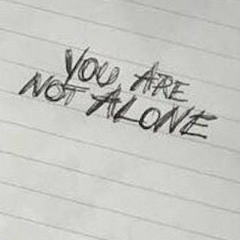 YOU ARE
NOT ALONE